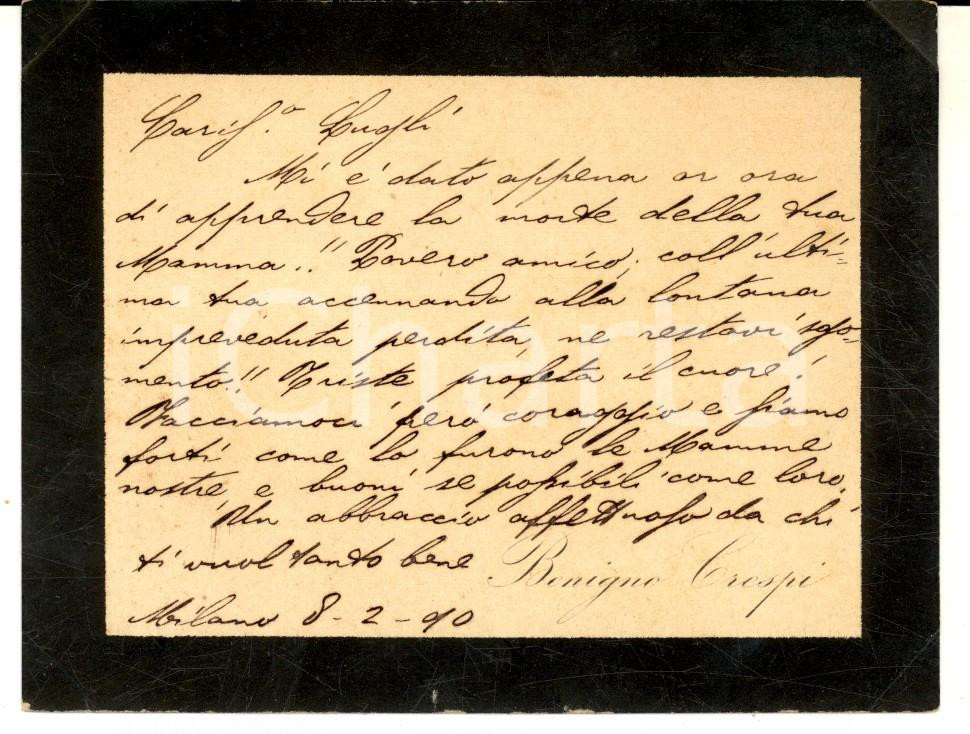 Caris.º Lugli
Mi è dato appena or ora
di apprendere la morte della tua
Mamma!! Povero amico, coll'ulti=
ma tua accennando alla lontana
impreveduta perdita, ne restavi sgo=
mento!! Triste profeta il cuore!
Facciamoci però coraggio e siamo
forti come lo furono le Mamme
nostre, e buoni se possibili come loro.
Un abbraccio affettuoso da chi
ti vuol tanto bene
Benigno Crespi
Milano 8-2-90
iCharta